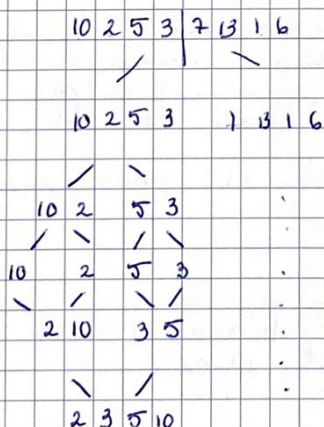 10 2 5 3 | 7 13 1 6
10 2 5 3 7 13 1 6
10 2 5 3
10 2 5 3
2 10 3 5
2 3 5 10